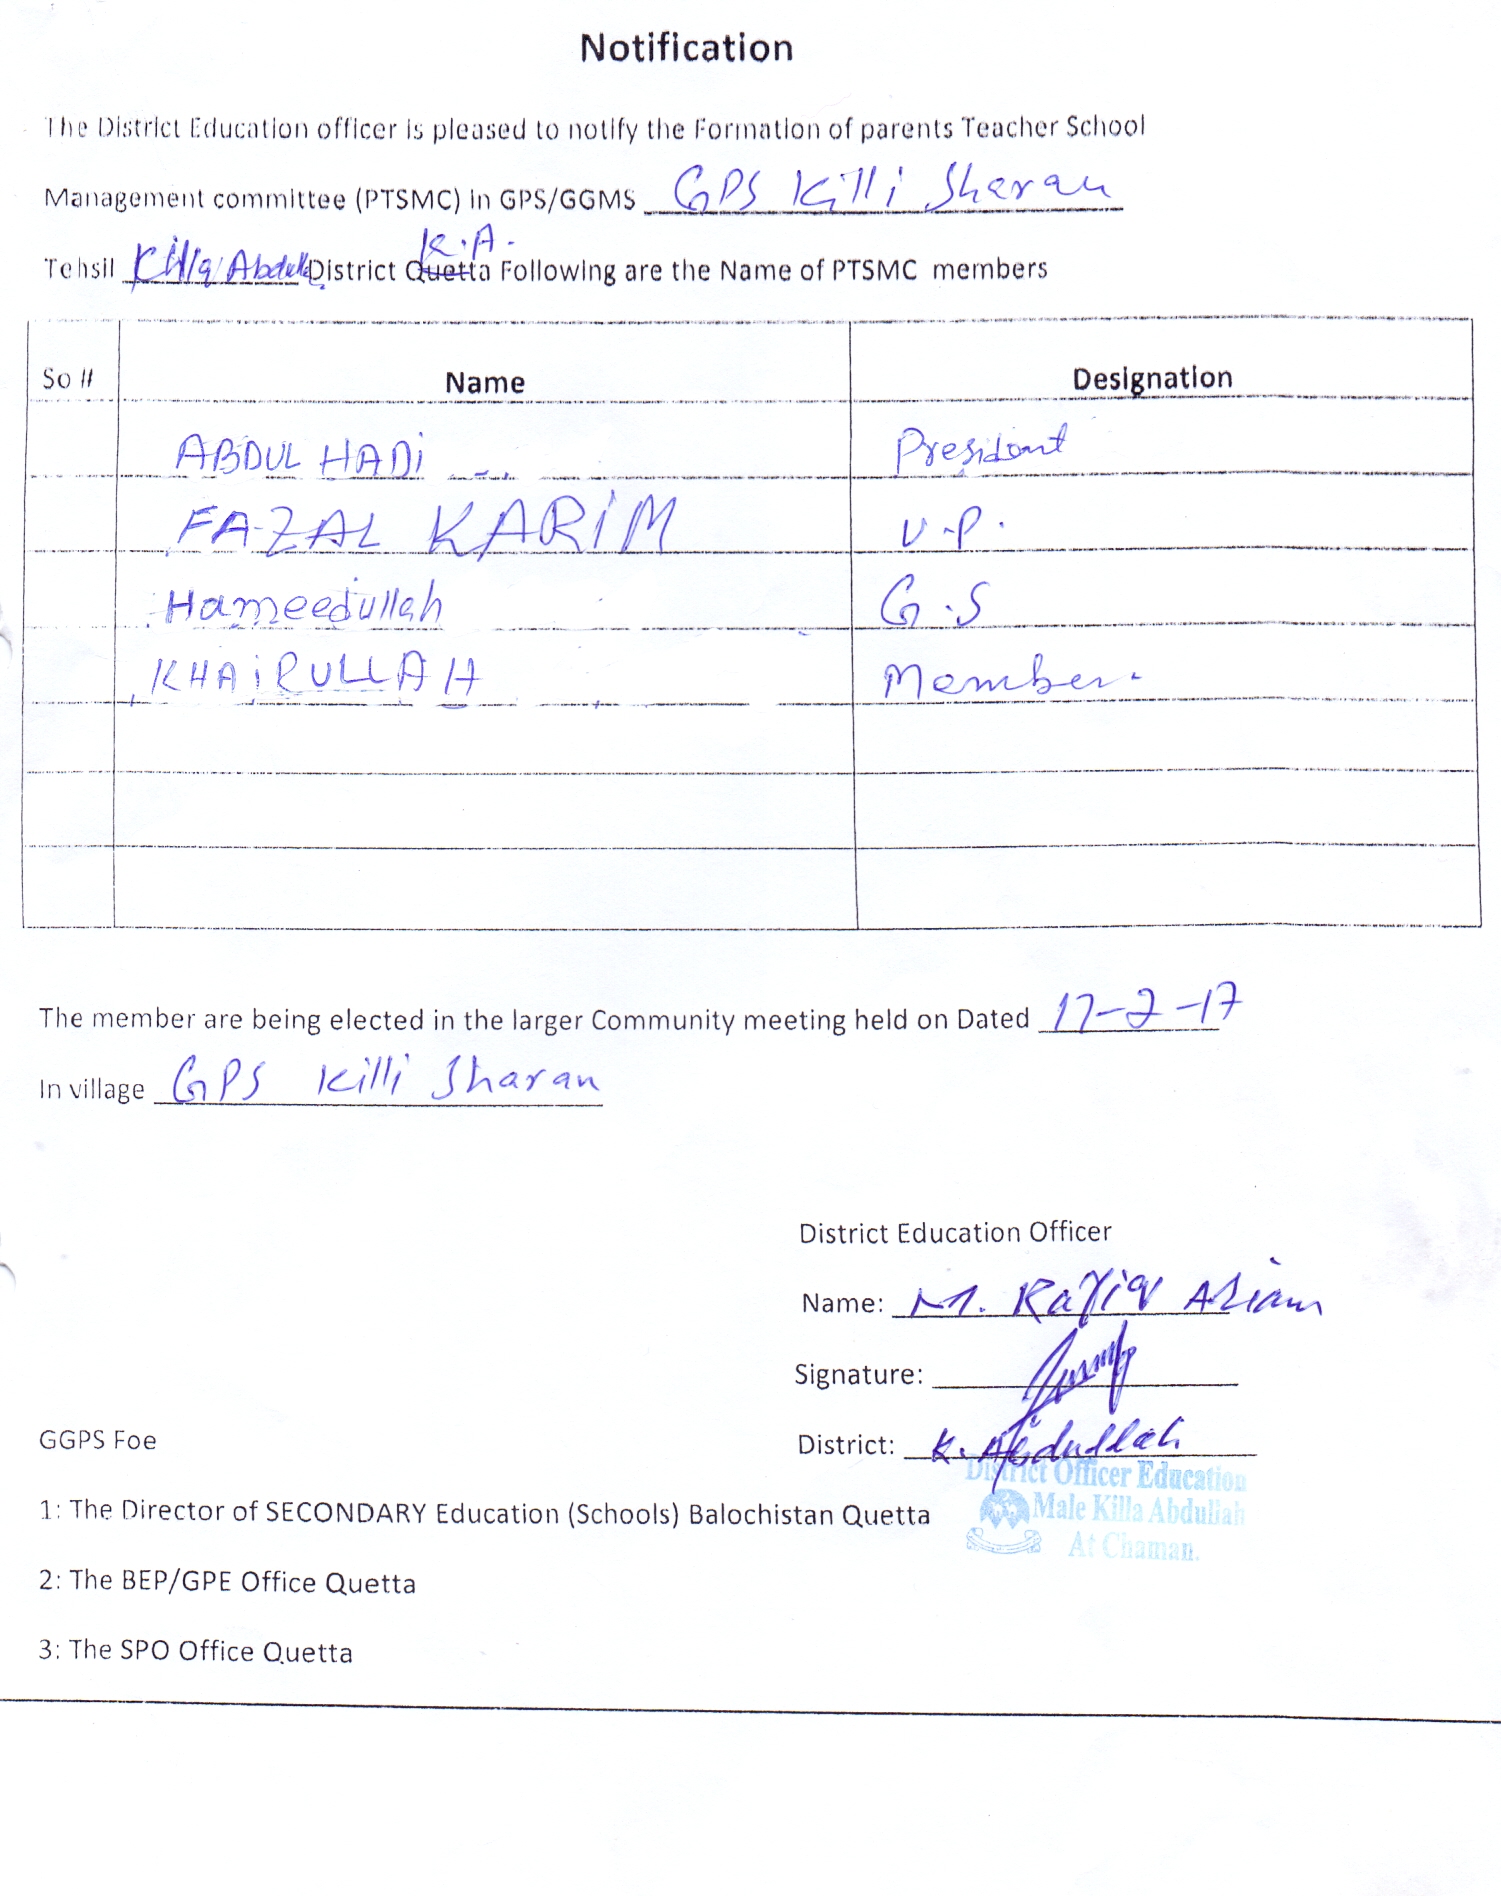 Notification
The District Education officer is pleased to notify the Formation of parents Teacher School
Management committee (PTSMC) in GPS/GGMS GPS Killi Sharan
K.A.
Tehsil Killa Abdull District Quetta Following are the Name of PTSMC members
So # Name Designation
ABDUL HADi President
FAZAL KARiM V.P.
Hameedullah G.S
KHAiRULLAH Member.
The member are being elected in the larger Community meeting held on Dated 17-2-17
In village GPS Killi Sharan
District Education Officer
Name: M. Rafiq
Signature:
GGPS Foe
District: K. Abdullah
District Officer Education
1: The Director of SECONDARY Education (Schools) Balochistan Quetta
Male Killa Abdullah
At Chaman.
2: The BEP/GPE Office Quetta
3: The SPO Office Quetta